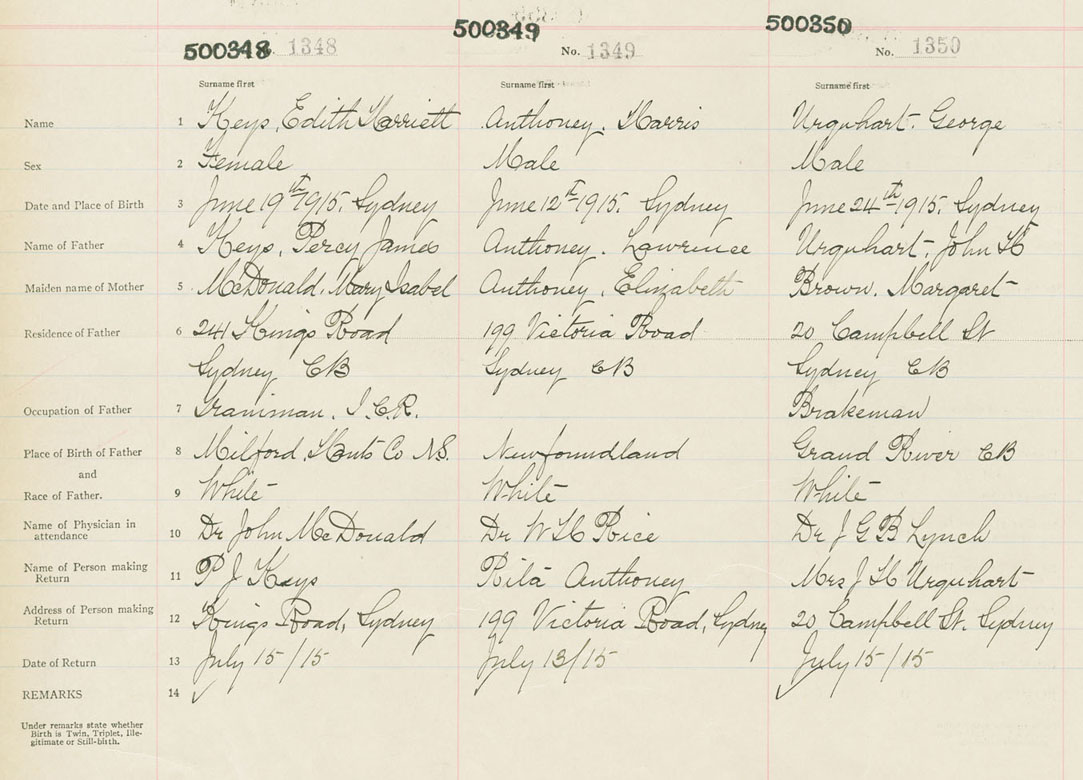 500348 500349 500350
1348 No. 1349 No. 1350
Surname first Surname first Surname first
Name 1 Keys, Edith Harriett Anthoney, Harris Urquhart, George
Sex 2 Female Male Male
Date and Place of Birth 3 June 19th 1915, Sydney June 12th 1915, Sydney June 24th 1915, Sydney
Name of Father 4 Keys, Percy James Anthoney, Lawrence Urquhart, John H
Maiden name of Mother 5 McDonald, Mary Isabel Anthoney, Elizabeth Brown, Margaret
Residence of Father 6 241 Kings Road 199 Victoria Road 20 Campbell St
Sydney CB Sydney CB Sydney CB
Occupation of Father 7 Trainman, I.C.R. Brakeman
Place of Birth of Father 8 Milford, Hants Co NS. Newfoundland Grand River CB
and
Race of Father. 9 White White White
Name of Physician in
attendance 10 Dr John McDonald Dr W H Rice Dr J G B Lynch
Name of Person making
Return 11 P J Keys Rita Anthoney Mrs J H Urquhart
Address of Person making
Return 12 Kings Road, Sydney 199 Victoria Road, Sydney 20 Campbell St. Sydney
Date of Return 13 July 15/15 July 13/15 July 15/15
REMARKS 14
Under remarks state whether
Birth is Twin, Triplet, Ille-
gitimate or Still-birth.